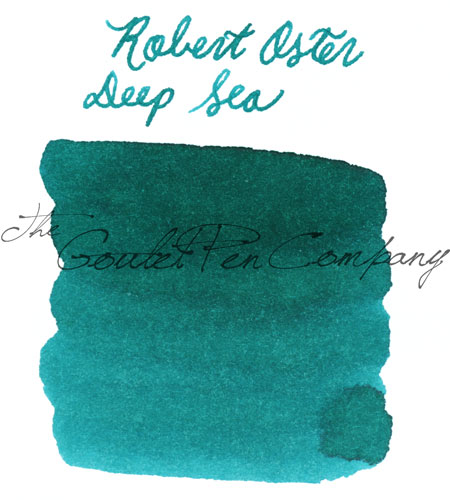 Robert Oster
Deep Sea
The
Goulet Pen Company